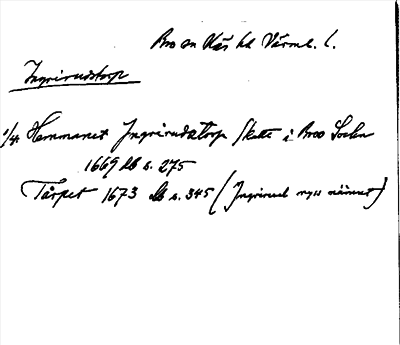 Bro sn Näs hd Värml. l.
Ingrirudstorp
1/4 Hemmanet Ingrirudztorp Skatte i Broo Sochn
1669 lb s. 275
Torpet 1673 lb s. 345 (Ingrirud nyss nämnt)